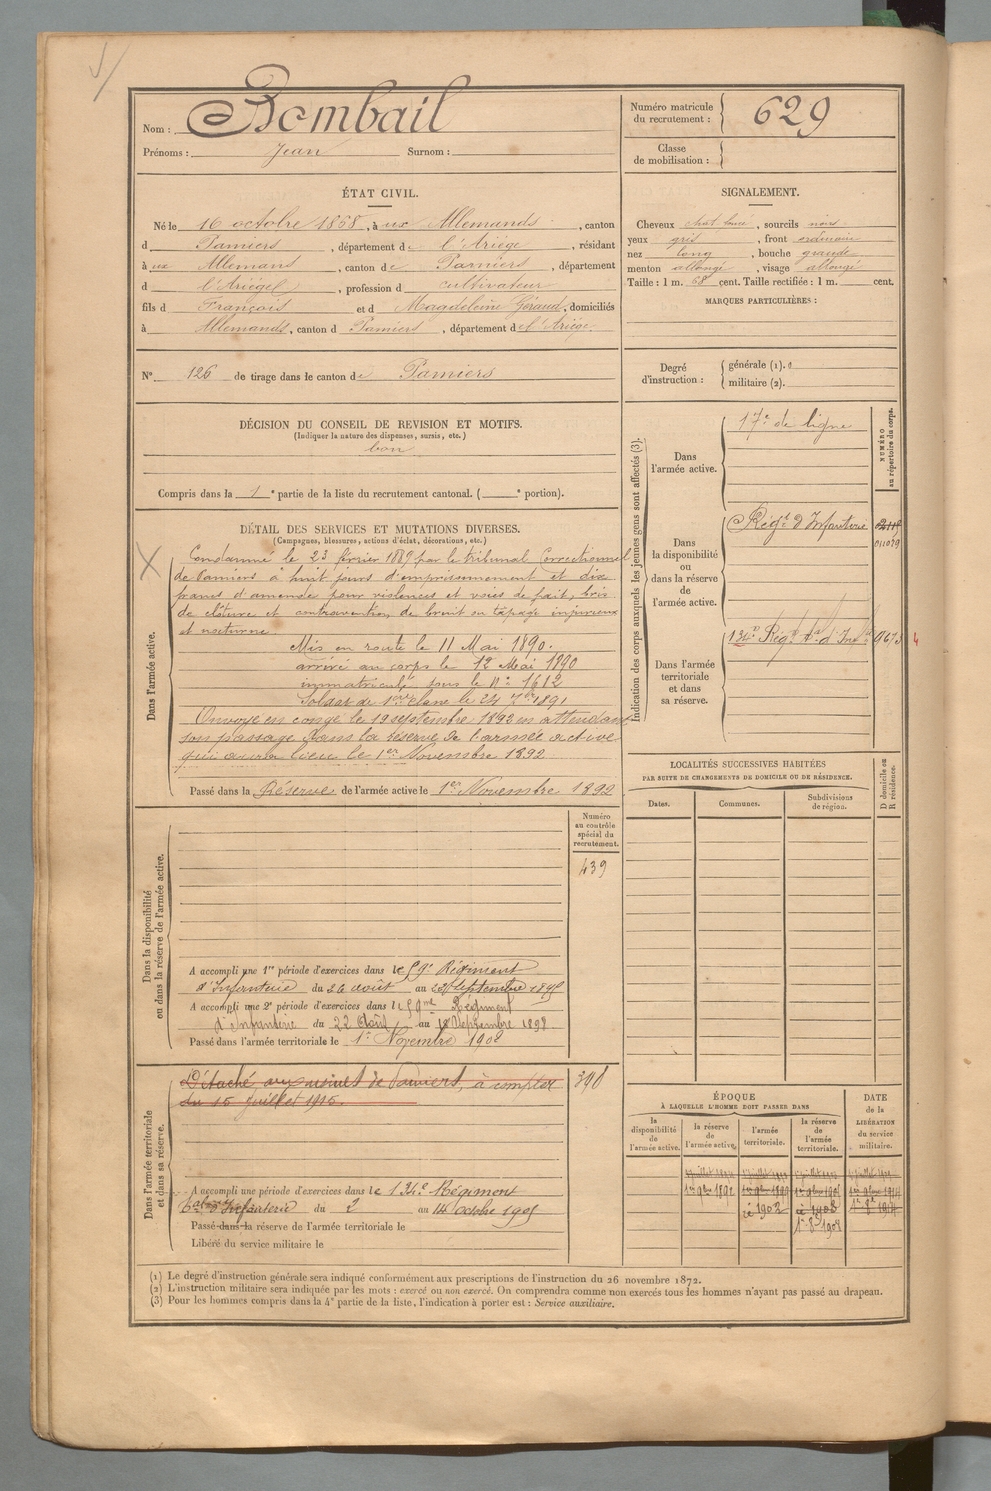 Nom : Bombail
Prénoms : Jean Surnom :
Numéro matricule du recrutement : 629
Classe de mobilisation :
ÉTAT CIVIL.
Né le 16 octobre 1868, à ux Allemands, canton
d Pamiers, département de l'Ariège, résidant
à ux Allemans, canton de Pamiers, département
d l'Ariége, profession de cultivateur
fils d François et d Magdeleine Géraud, domiciliés
à Allemands, canton d Pamiers, département de l'Ariège.
SIGNALEMENT.
Cheveux chat. foncé, sourcils noirs
yeux gris, front ordinaire
nez long, bouche grande
menton allongé, visage allongé
Taille : 1 m. 68 cent. Taille rectifiée : 1 m. cent.
MARQUES PARTICULIÈRES :
N° 126 de tirage dans le canton de Pamiers
Degré d'instruction : générale (1).
militaire (2).
DÉCISION DU CONSEIL DE REVISION ET MOTIFS.
(Indiquer la nature des dispenses, sursis, etc.)
bon
Compris dans la 1e partie de la liste du recrutement cantonal. ( e portion).
DÉTAIL DES SERVICES ET MUTATIONS DIVERSES.
(Campagnes, blessures, actions d'éclat, décorations, etc.)
Dans l'armée active.
Condamné le 23 février 1889 par le tribunal Correctionnel
de Pamiers à huit jours d'emprisonnement et dix
francs d'amende pour violences et voies de fait, bris
de clôture et contravention de bruit ou tapage injurieux
et nocturne.
Mis en route le 11 Mai 1890.
arrivé au corps le 12 Mai 1890
immatriculé sous le N° 1612
Soldat de 1ère classe le 24 7bre 1891
Envoyé en congé le 19 septembre 1892 en attendant
son passage dans la réserve de l'armée active
qui aura lieu le 1er Novembre 1892
Passé dans la Réserve de l'armée active le 1er Novembre 1892
Indication des corps auxquels les jeunes gens sont affectés (3).
NUMÉRO au répertoire du corps.
Dans l'armée active.
17e de ligne
Dans la disponibilité ou dans la réserve de l'armée active.
Régt d'Infanterie
Dans l'armée territoriale et dans sa réserve.
134e Régt
LOCALITÉS SUCCESSIVES HABITÉES
PAR SUITE DE CHANGEMENTS DE DOMICILE OU DE RÉSIDENCE.
D domicile ou R résidence.
Dates. Communes. Subdivisions de région.
Dans la disponibilité ou dans la réserve de l'armée active.
Numéro au contrôle spécial du recrutement.
439
A accompli une 1re période d'exercices dans le 59e Régiment
d'Infanterie du 26 août au septembre 1895
A accompli une 2e période d'exercices dans le 59me Régiment
d'Infanterie du 22 Août au 18 Septembre 1898
Passé dans l'armée territoriale le 1er Novembre 1902
Dans l'armée territoriale et dans sa réserve.
Détaché aux usines de Pamiers, à compter
du 15 Juillet 1915.
398
A accompli une période d'exercices dans le 134e Régiment
d'Infanterie du 2 au 14 Octobre 1905
Passé dans la réserve de l'armée territoriale le
Libéré du service militaire le
ÉPOQUE
À LAQUELLE L'HOMME DOIT PASSER DANS
DATE de la LIBÉRATION du service militaire.
la disponibilité de l'armée active.
la réserve de l'armée active.
l'armée territoriale.
la réserve de l'armée territoriale.
1er 9bre 1892
1902
1er 8 1908
(1) Le degré d'instruction générale sera indiqué conformément aux prescriptions de l'instruction du 26 novembre 1872.
(2) L'instruction militaire sera indiquée par les mots : exercé ou non exercé. On comprendra comme non exercés tous les hommes n'ayant pas passé au drapeau.
(3) Pour les hommes compris dans la 4e partie de la liste, l'indication à porter est : Service auxiliaire.